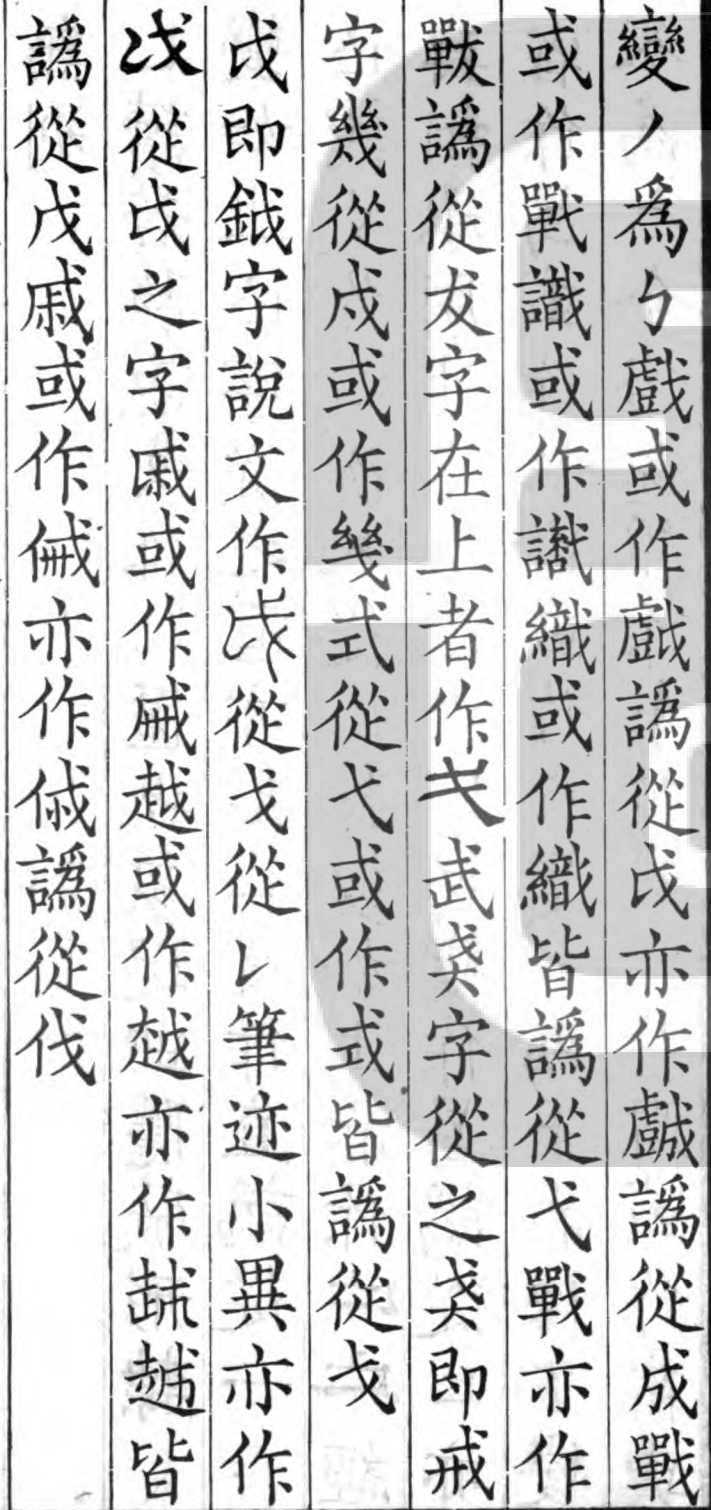 變丿爲𠂊戲或作戱譌從戉亦作䖍譌從成戰
或作戰識或作識織或作織皆譌從弋戰亦作
戰譌從犮字在上者作弋武戔字從之戔即戒
字幾從戍或作幾式從弋或作式皆譌從戈
戉即鉞字說文作戉從戈從𠄌筆迹小異亦作
戉從戉之字戚或作戚越或作越亦作越越皆
譌從戊戚或作傶亦作傶譌從伐